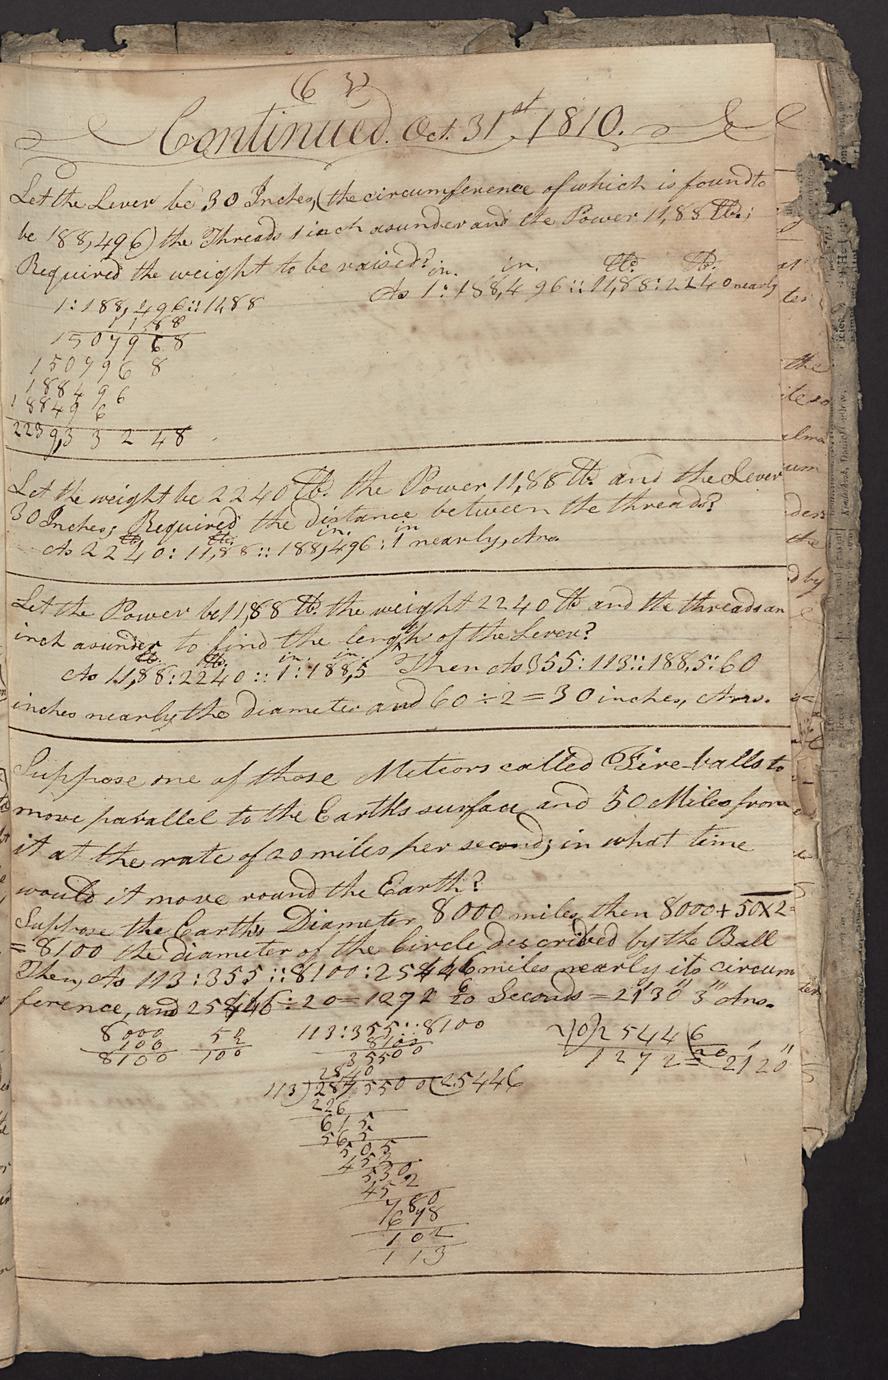 (63)
Continued. Oct. 31st 1810.
Let the Lever be 30 Inches, (the circumference of which is found to
be 188,496) the Threads 1 inch asunder and the Power 11,88 lb:
Required the weight to be raised?
in. in. lb: lb:
As 1 : 188,496 :: 11,88 : 2240 nearly
1 : 188,496 :: 11,88
1188
1507968
1507968
188496
188496
2239,33248
Let the weight be 2240 lb. the Power 11,88 lb. and the Lever
30 Inches; Required the distance between the threads?
lb. lb. in. in
As 2240 : 11,88 :: 188,496 : 1 nearly, Ans.
Let the Power be 11,88 lb. the weight 2240 lb and the threads an
inch asunder to find the length of the Lever?
lb. lb. in. in.
As 11,88 : 2240 :: 1 : 188,5 Then As 355 : 113 :: 188,5 : 60
inches nearly the diameter and 60 ÷ 2 = 30 inches, Ans.
Suppose one of those Meteors called Fire-balls to
move parallel to the Earth's surface and 50 Miles from
it at the rate of 20 miles per second; in what time
would it move round the Earth?
Suppose the Earth's Diameter 8000 miles, then 8000 + 50 X 2 =
= 8100 the diameter of the Circle described by the Ball
Then, As 113 : 355 :: 8100 : 25446 miles nearly its circum
ference, and 25446 ÷ 20 = 1272 Seconds = 21' 30" 3"' Ans.
8000
100
8100
50
2
100
113 : 355 :: 8100
8100
35500
2840
113)2875500(25446
226
615
565
505
452
530
452
780
678
102
113
2|0)2544|6
1272 = 21' 20"